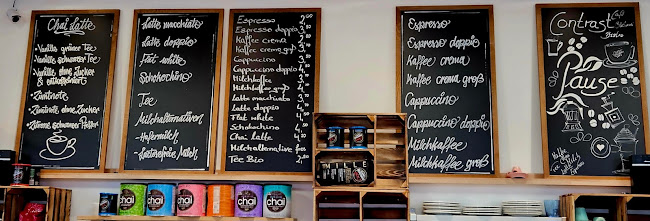 Chai Latte
Vanille grüner Tee
Vanille schwarzer Tee
Vanille ohne Zucker
& entkoffeiniert
Zimtnote
Zimtnote ohne Zucker
Zitrone schwarzer
Latte macchiato
Latte doppio
Flat white
Schokochino
Tee
Milchalternativen
-Hafermilch
-Lactosefreie Milch
Espresso
Espresso doppio
Kaffee crema
Kaffee crema groß
Cappuccino
Cappuccino doppio
Milchkaffee
Milchkaffee groß
Latte macchiato
Latte doppio
Flat white
Schokochino
Chai Latte
Milchalternative
Tee Bio
Espresso
Espresso doppio
Kaffee crema
Kaffee crema groß
Cappuccino
Cappuccino doppio
Milchkaffee
Milchkaffee groß
Contrast
Café
Bistro
Pause
chai
chai
chai
chai
chai